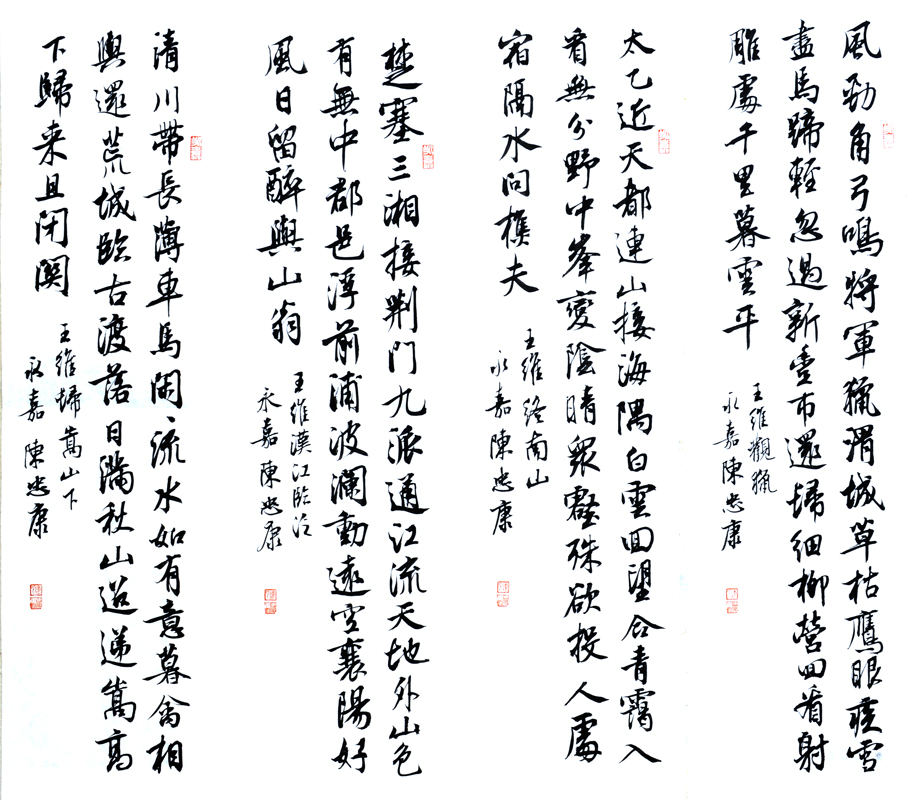 風勁角弓鳴將軍獵渭城草枯鷹眼疾雪
盡馬蹄輕忽過新豐市還歸細柳營回看射
雕處千里暮雲平
王維觀獵
永嘉陳忠康
太乙近天都連山接海隅白雲回望合青靄入
看無分野中峯變陰晴衆壑殊欲投人處
宿隔水問樵夫
王維終南山
永嘉陳忠康
楚塞三湘接荊門九派通江流天地外山色
有無中郡邑浮前浦波瀾動遠空襄陽好
風日留醉與山翁
王維漢江臨泛
永嘉陳忠康
清川帶長薄車馬閑〻流水如有意暮禽相
與還荒城臨古渡落日滿秋山迢遞嵩高
下歸来且閉関
王維歸嵩山下
永嘉陳忠康